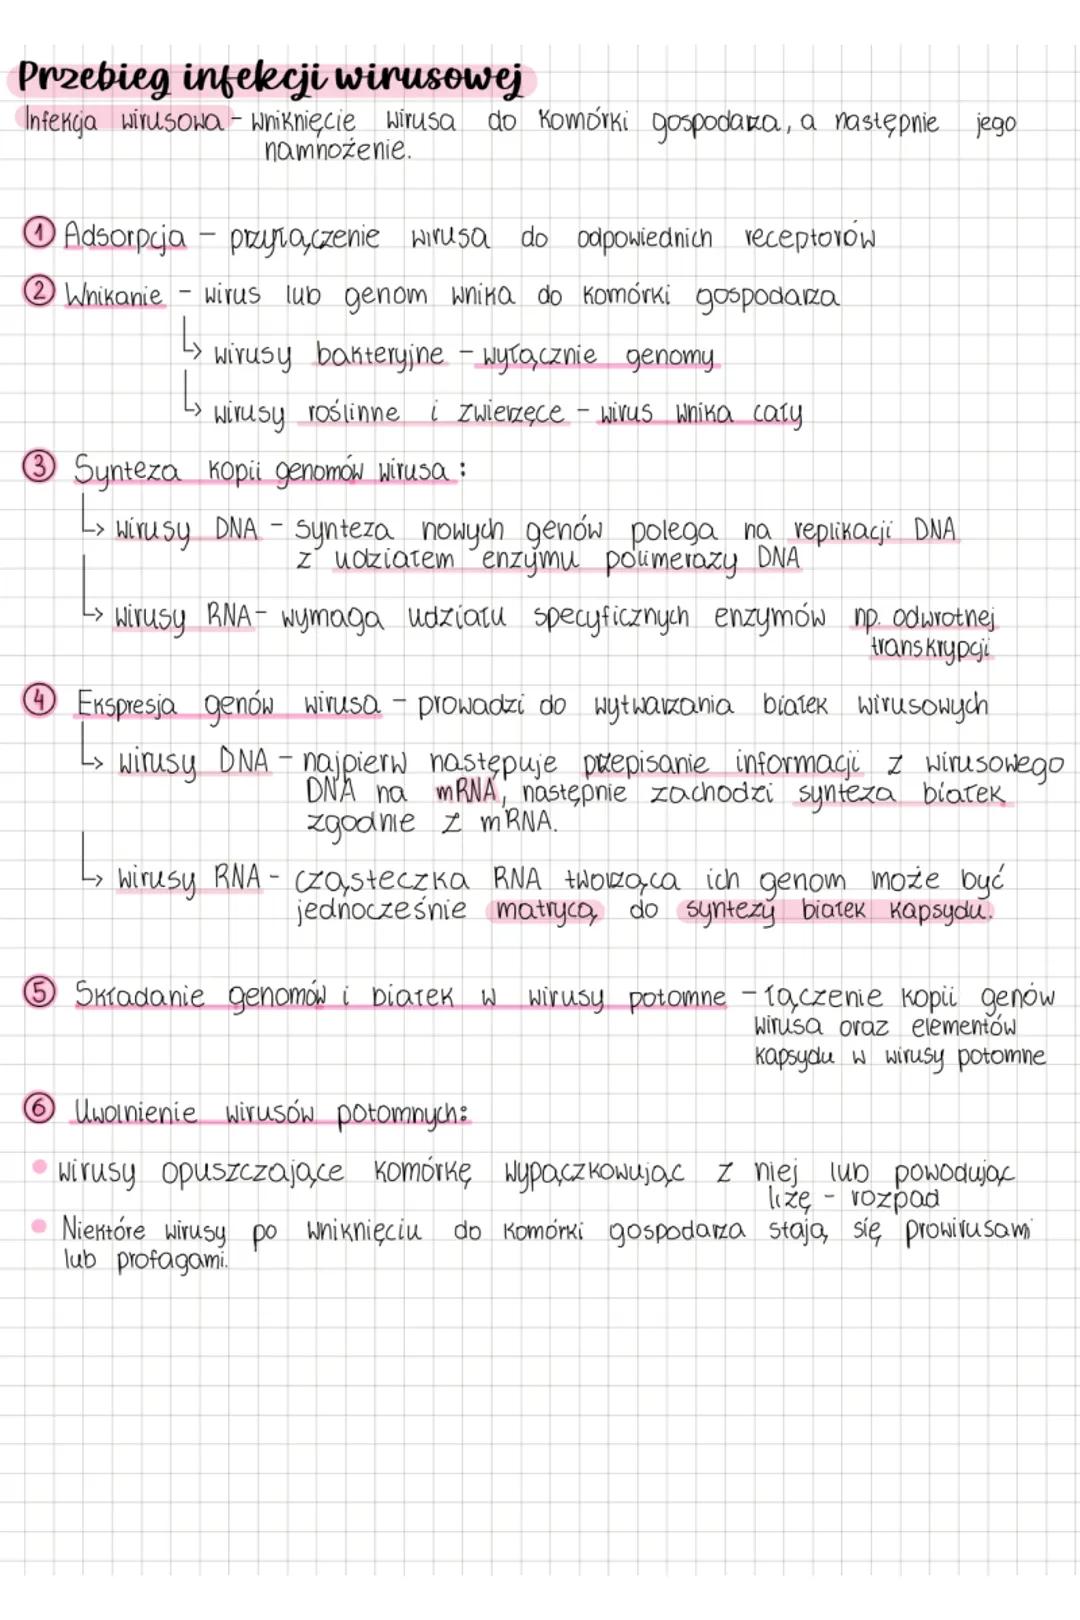 Przebieg infekcji wirusowej
Infekcja wirusowa - wniknięcie wirusa do komórki gospodarza, a następnie jego
namnożenie.
① Adsorpcja - przyłączenie wirusa do odpowiednich receptorów
② Wnikanie - wirus lub genom wnika do komórki gospodarza
↳ wirusy bakteryjne - wyłącznie genomy
↳ wirusy roślinne i zwierzęce - wirus wnika cały
③ Synteza kopii genomów wirusa :
↳ wirusy DNA - synteza nowych genów polega na replikacji DNA
z udziałem enzymu polimerazy DNA
↳ wirusy RNA - wymaga udziału specyficznych enzymów np. odwrotnej
transkrypcji
④ Ekspresja genów wirusa - prowadzi do wytwarzania białek wirusowych
↳ wirusy DNA - najpierw następuje przepisanie informacji z wirusowego
DNA na mRNA, następnie zachodzi synteza białek
zgodnie z mRNA.
↳ wirusy RNA - cząsteczka RNA tworząca ich genom może być
jednocześnie matrycą do syntezy białek kapsydu.
⑤ Składanie genomów i białek w wirusy potomne - łączenie kopii genów
wirusa oraz elementów
kapsydu w wirusy potomne
⑥ Uwolnienie wirusów potomnych:
• wirusy opuszczające komórkę wypączkowując z niej lub powodując
lizę - rozpad
• Niektóre wirusy po wniknięciu do komórki gospodarza stają się prowirusami
lub profagami.